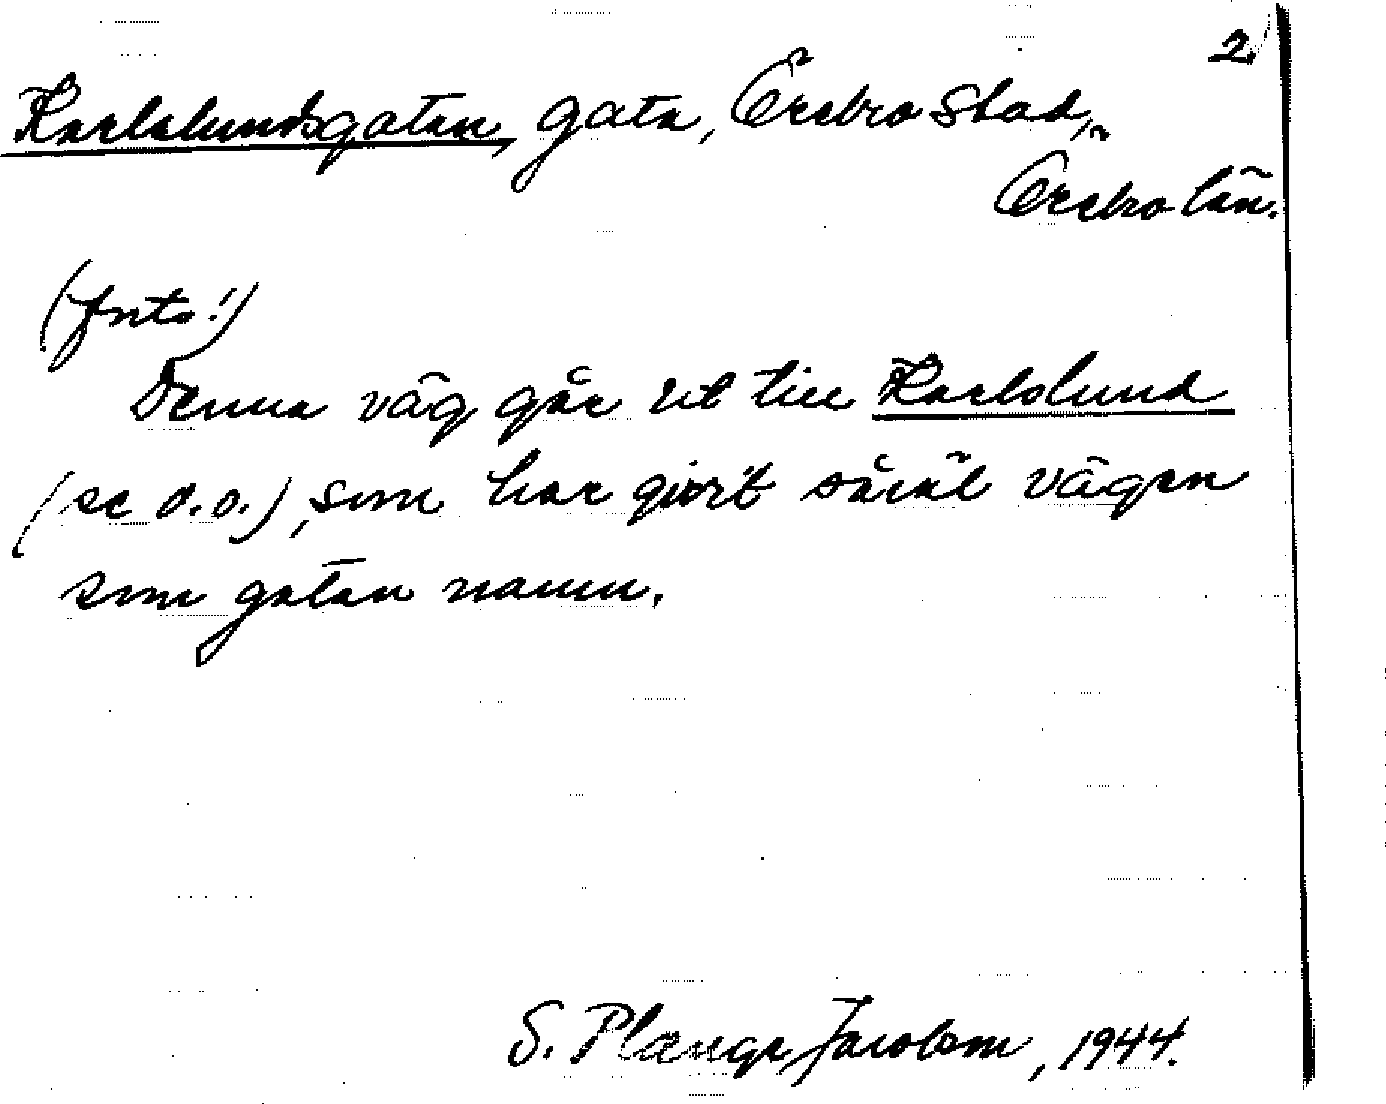 2.
Karlslundsgatan, gata, Örebro stad,
Örebro län.
(forts.!)
Denna väg går ut till Karlslund
(se d.o.), som har givit såväl vägen
som gatan namn.
S. Plænge Jacobson, 1944.